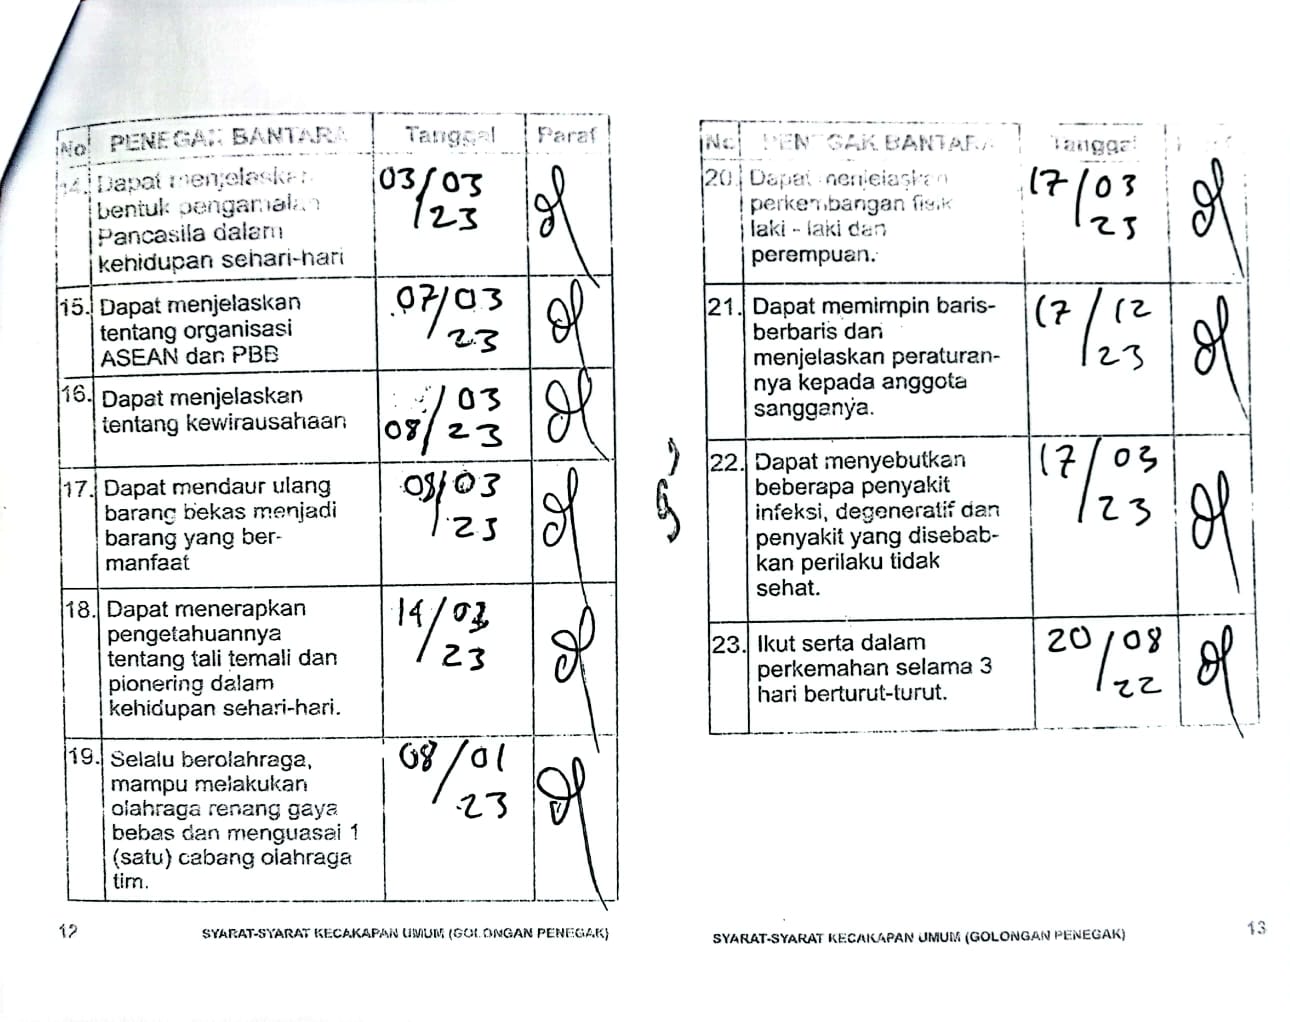 No PENEGAK BANTARA Tanggal Paraf
14. Dapat menjelaskan 03/03
bentuk pengamalan 23
Pancasila dalam
kehidupan sehari-hari
15. Dapat menjelaskan 07/03
tentang organisasi 23
ASEAN dan PBB
16. Dapat menjelaskan 03
tentang kewirausahaan 08/23
17. Dapat mendaur ulang 08/03
barang bekas menjadi 23
barang yang ber-
manfaat
18. Dapat menerapkan 14/03
pengetahuannya 23
tentang tali temali dan
pionering dalam
kehidupan sehari-hari.
19. Selalu berolahraga, 08/01
mampu melakukan 23
olahraga renang gaya
bebas dan menguasai 1
(satu) cabang olahraga
tim.
12 SYARAT-SYARAT KECAKAPAN UMUM (GOLONGAN PENEGAK)
No PENEGAK BANTARA Tanggal
20. Dapat menjelaskan 17/03
perkembangan fisik 23
laki - laki dan
perempuan.
21. Dapat memimpin baris- 17/12
berbaris dan 23
menjelaskan peraturan-
nya kepada anggota
sangganya.
22. Dapat menyebutkan 17/03
beberapa penyakit 23
infeksi, degeneratif dan
penyakit yang disebab-
kan perilaku tidak
sehat.
23. Ikut serta dalam 20/08
perkemahan selama 3 22
hari berturut-turut.
SYARAT-SYARAT KECAKAPAN UMUM (GOLONGAN PENEGAK) 13